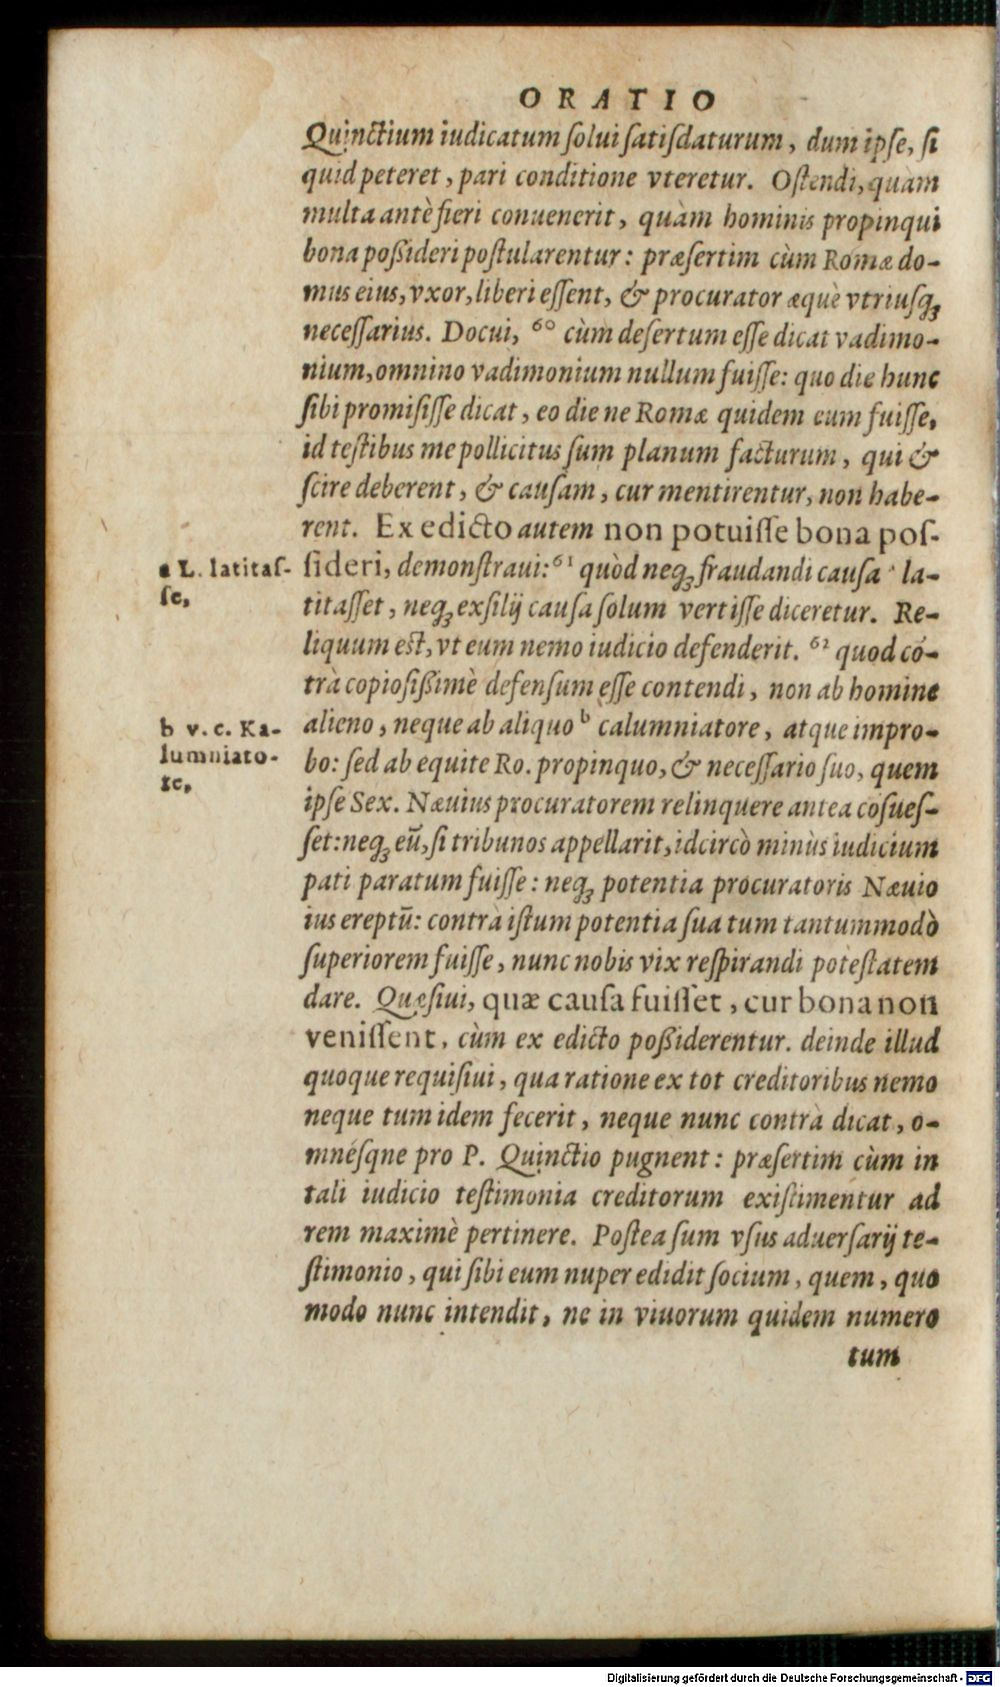 ORATIO
Quinctium iudicatum solui satisdaturum, dum ipse, si
quid peteret, pari conditione vteretur. Ostendi, quàm
multa antè fieri conuenerit, quàm hominis propinqui
bona poßideri postularentur: præsertim cùm Romæ do-
mus eius, vxor, liberi essent, & procurator æquè vtriusq́;
necessarius. Docui, 60 cùm desertum esse dicat vadimo-
nium, omnino vadimonium nullum fuisse: quo die hunc
sibi promisisse dicat, eo die ne Romæ quidem eum fuisse,
id testibus me pollicitus sum planum facturum, qui &
scire deberent, & causam, cur mentirentur, non habe-
rent. Ex edicto autem non potuisse bona pos-
sideri, demonstraui: 61 quòd neq; fraudandi causa a la-
titasset, neq; exsilij causa solum vertisse diceretur. Re-
liquum est, vt eum nemo iudicio defenderit. 62 quod cō-
trà copiosißimè defensum esse contendi, non ab homine
alieno, neque ab aliquo b calumniatore, atque impro-
bo: sed ab equite Ro. propinquo, & necessario suo, quem
ipse Sex. Næuius procuratorem relinquere antea cōsues-
set: neq; eū, si tribunos appellarit, idcircò minùs iudicium
pati paratum fuisse: neq; potentia procuratoris Næuio
ius ereptū: contrà istum potentia sua tum tantummodò
superiorem fuisse, nunc nobis vix respirandi potestatem
dare. Quæsiui, quæ causa fuisset, cur bona non
venissent, cùm ex edicto poßiderentur. deinde illud
quoque requisiui, qua ratione ex tot creditoribus nemo
neque tum idem fecerit, neque nunc contrà dicat, o-
mnésqne pro P. Quinctio pugnent: præsertim cùm in
tali iudicio testimonia creditorum existimentur ad
rem maximè pertinere. Postea sum vsus aduersarij te-
stimonio, qui sibi eum nuper edidit socium, quem, quo
modo nunc intendit, ne in viuorum quidem numero
tum
a L. latitas-
se,
b v. c. Ka-
lumniato-
re,
Digitalisierung gefördert durch die Deutsche Forschungsgemeinschaft - DFG